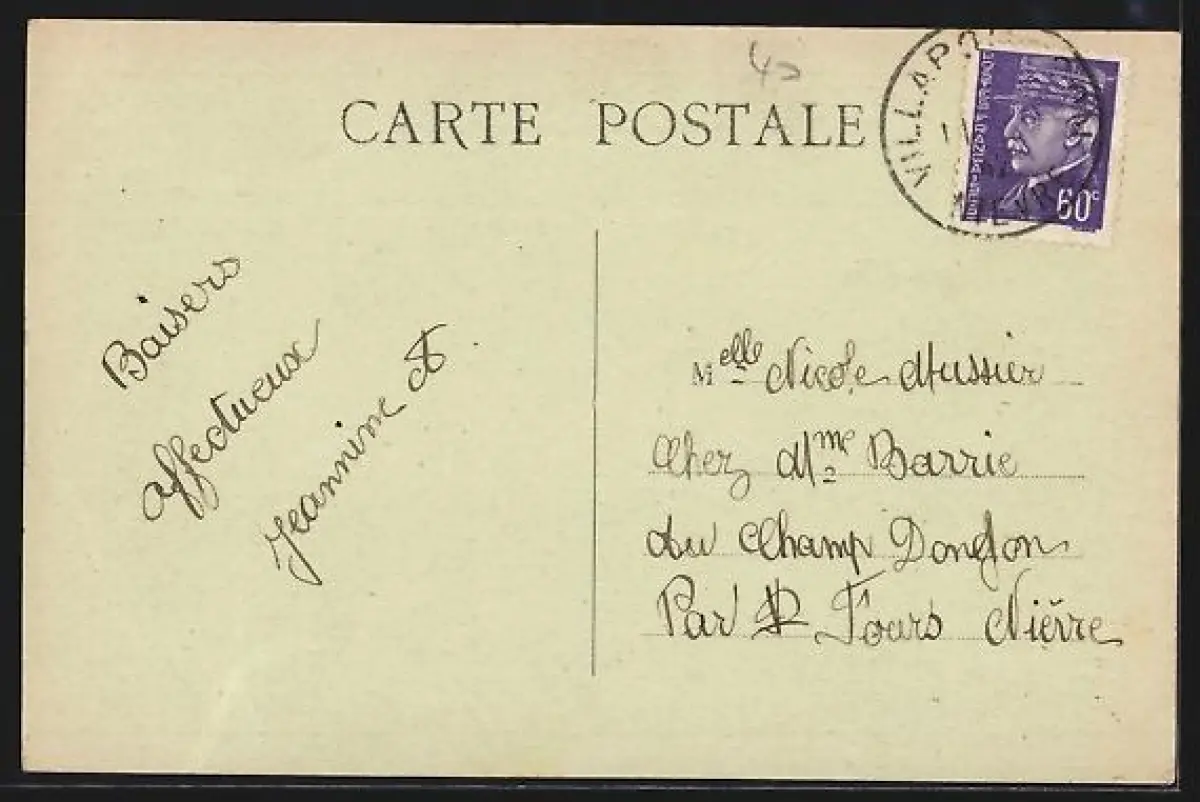 40
CARTE POSTALE
VILLAPO
NIEVRE
60c
Baisers
affectueux
Jeannine
Melle Nicole Mussier
Chez Mme Barrie
Au Champ Donjon
Par St Fours Nièvre